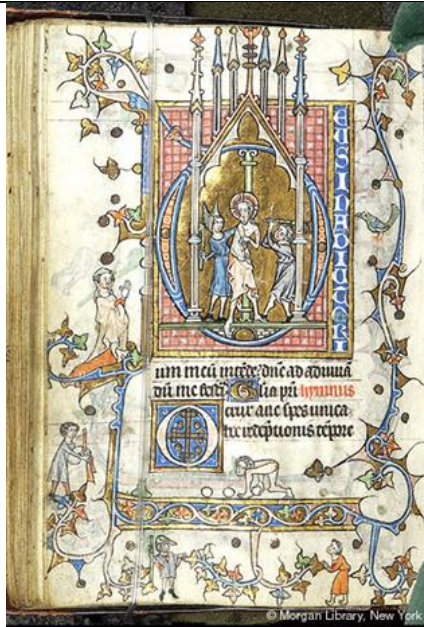 DEUSINADIUTORI
um meū intēde dn̄e ad adiuuā
dū me festī Glia pr̄i hymnus
O crux aue spes unica
redēptionis tēpore
© Morgan Library, New York